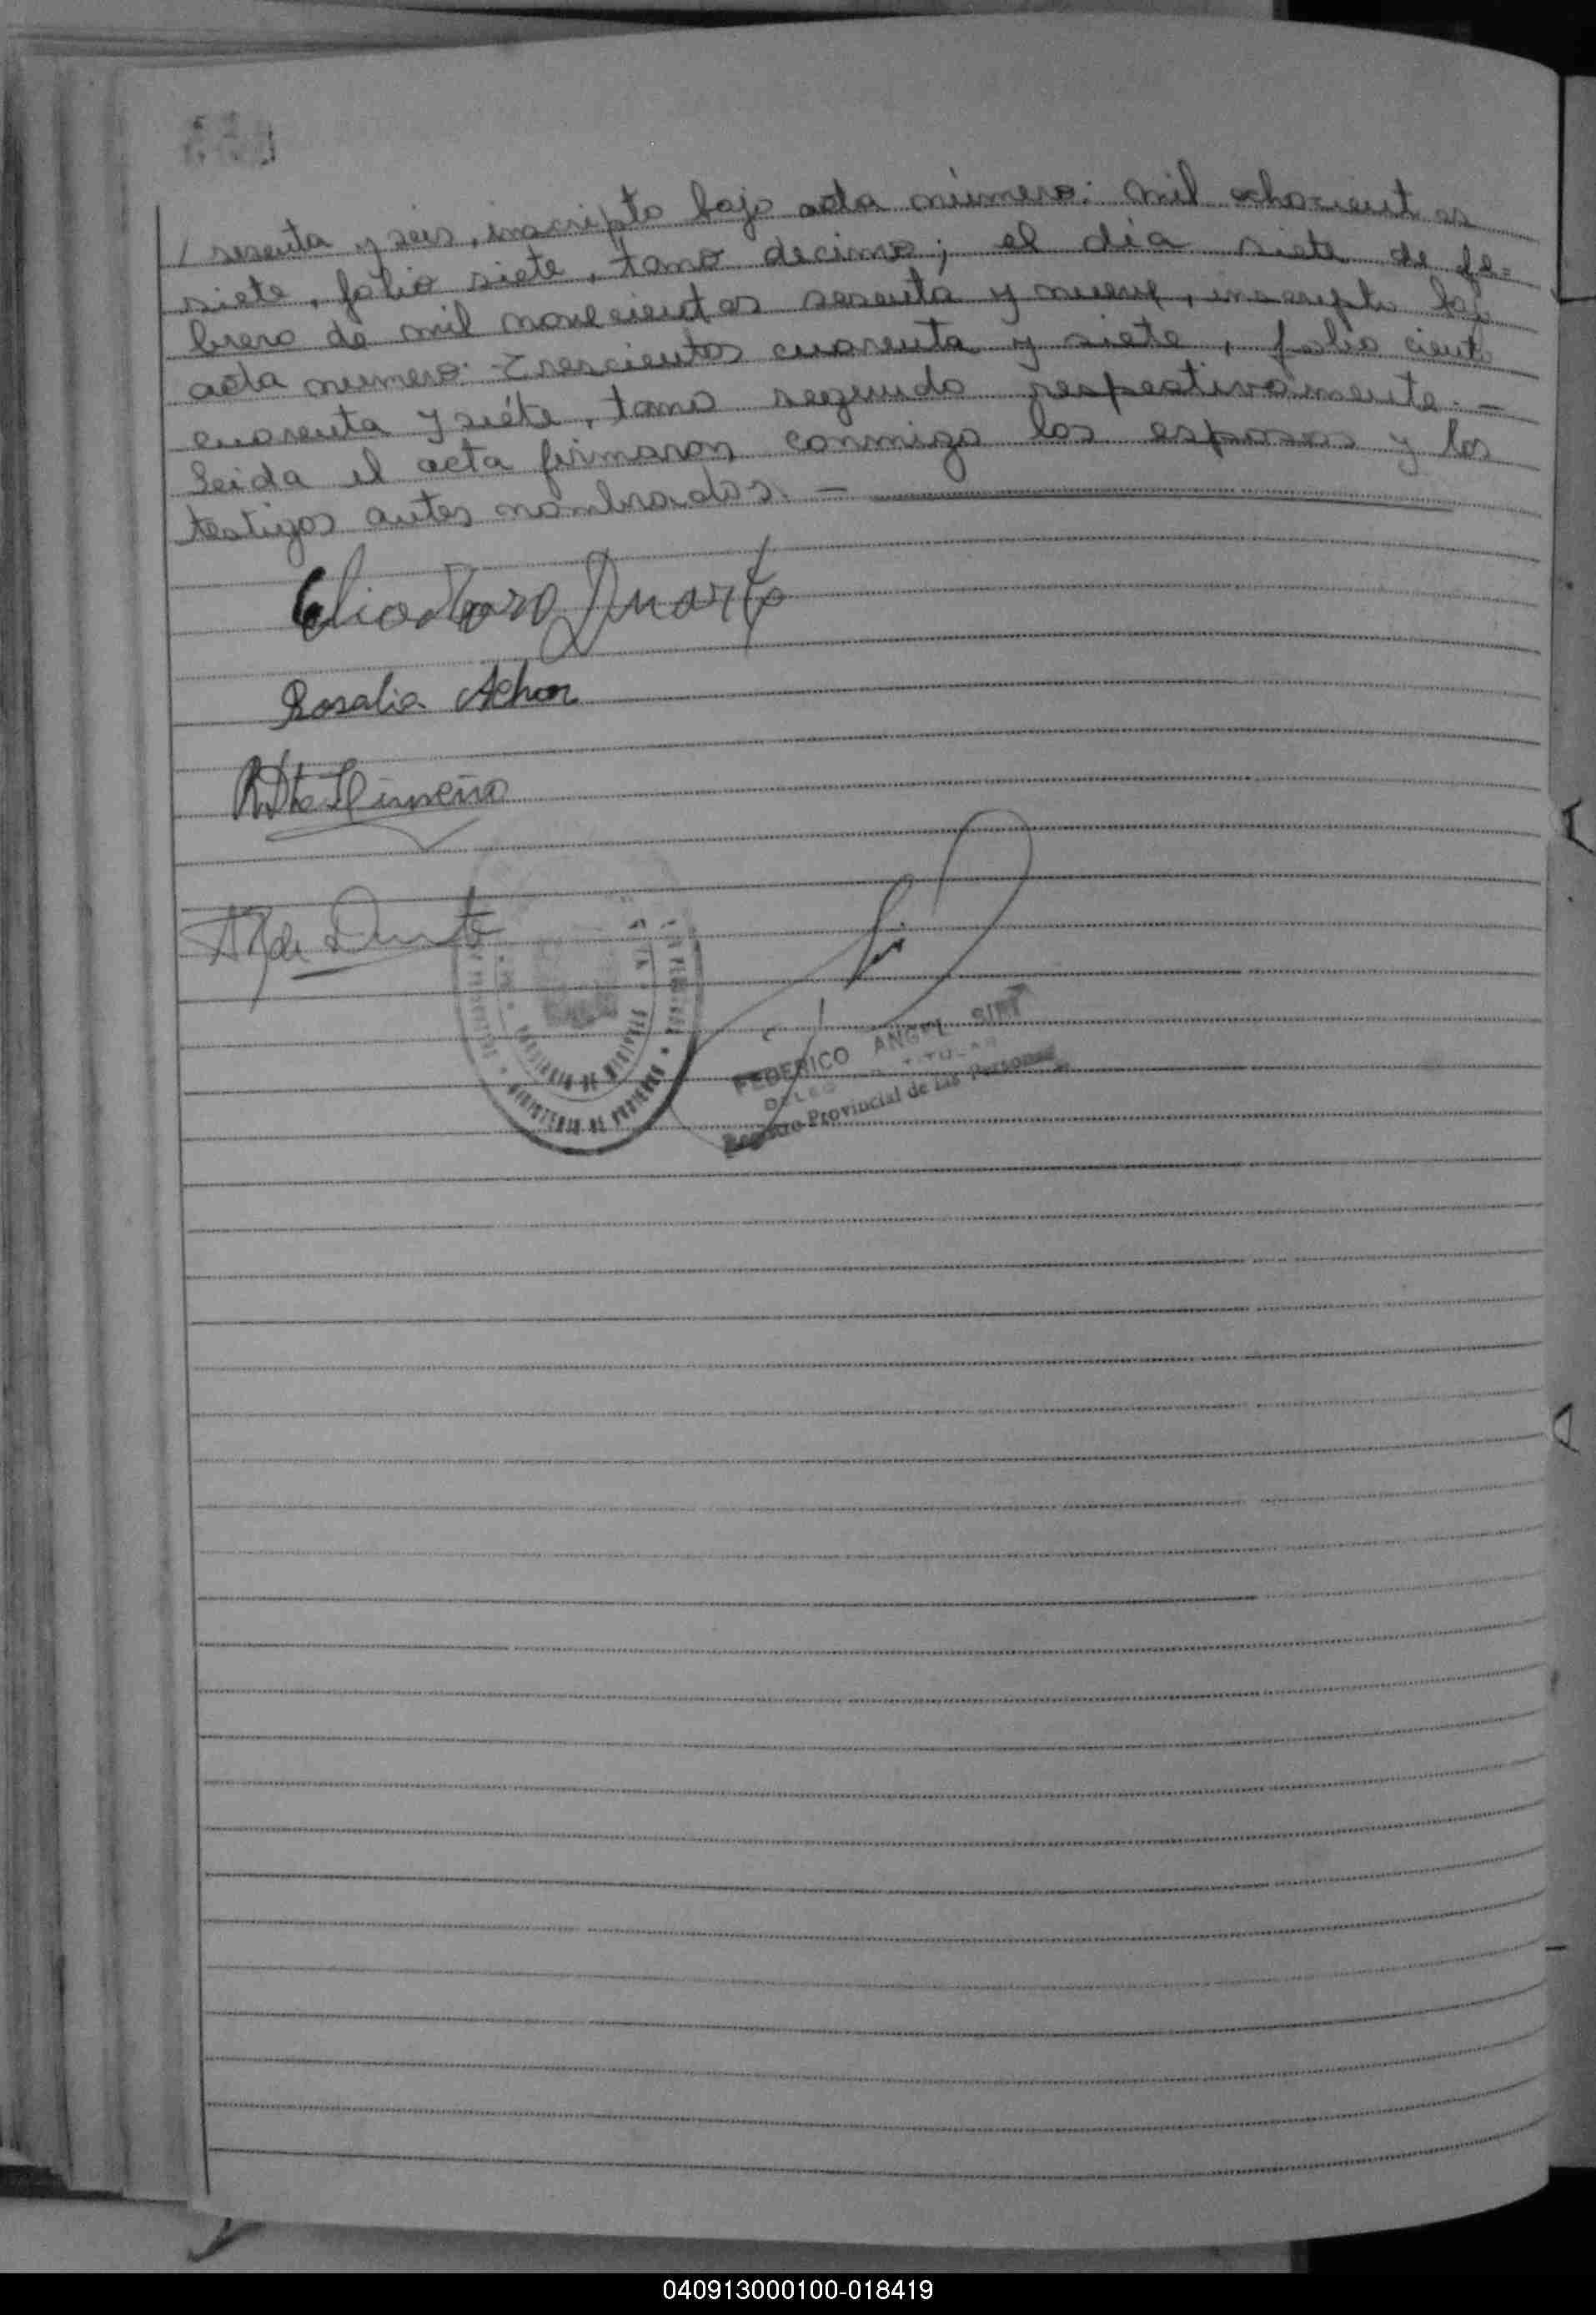 / sesenta y seis, inscripto bajo acta número: mil ochocientos
siete, folio siete, tomo decimo; el día siete de fe=
brero de mil novecientos sesenta y nueve, inscripto bajo
acta numero: Trescientos cuarenta y siete, folio ciento
cuarenta y siete, tomo segundo respectivamente. —
Leida el acta firmaron conmigo los esposos y los
testigos antes nombrados. —
Eliodoro Duarte
Rosalia
de Duarte
MINISTERIO DE
FEDERICO ANGEL
TITULAR
Registro Provincial de las Personas
040913000100-018419